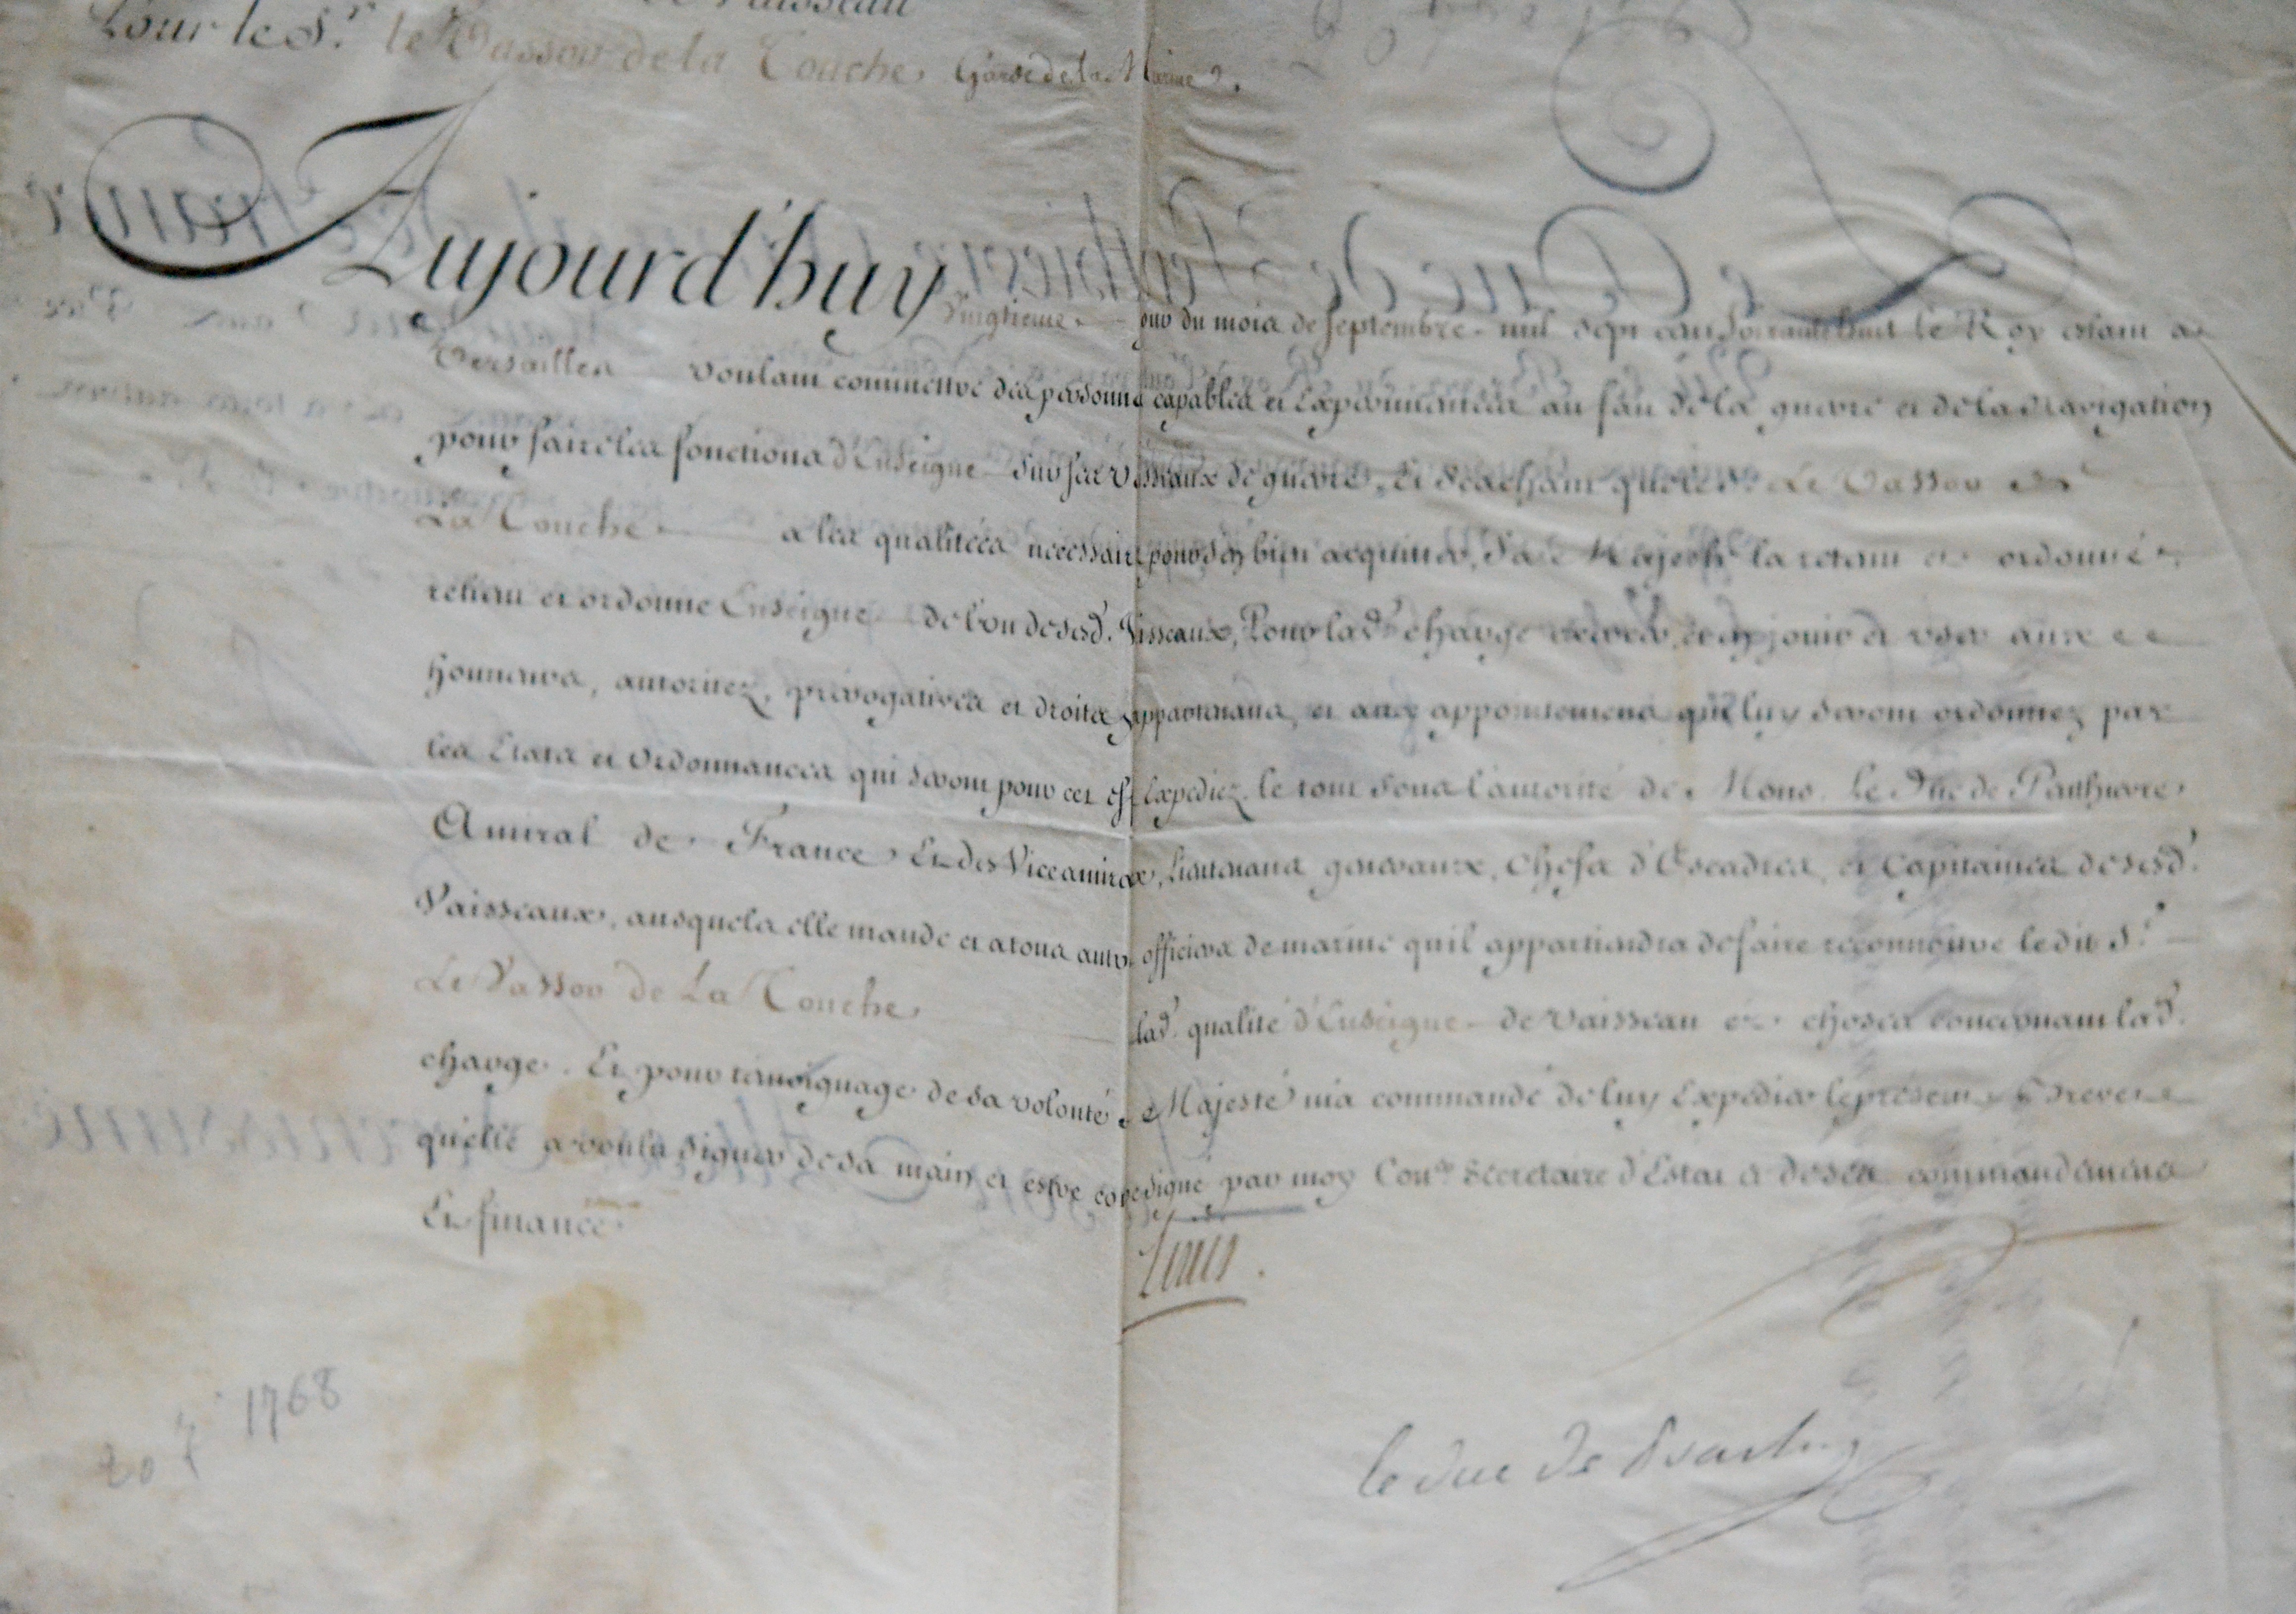 de Vaisseau
Pour le Sr. le Vassor de la Touche, Garde de la Marine.
Aujourd'huy Vingtieme jour du mois de septembre mil sept cens Soixante huit le Roy estant a
Versailles voulant commettre des personnes capables et Experimentées au fait de la guerre et de la Navigation
pour faire les fonctions d'Enseigne sur ses vaisseaux de guerre, Et Sachant que le Sr. Le Vassor de
La Touche a les qualitées necessaires pour s'en bien acquitter, Sa Majesté la retenu et ordonné
retient et ordonne Enseigne de l'un de sesd. Vaisseaux, Pour lad. charge exercer, et en jouir et user aux
honneurs, autoritez, prerogatives et droits y appartenans, et aux appointemens qui luy seront ordonnez par
les Etats et Ordonnances qui seront pour cet eff Expediez le tout sous l'autorité de Mons. le Duc de Penthievre
Amiral de France Et des Viceamiraux, Lieutenans generaux, Chefs d'Escadres, et Capitaines de sesd.
Vaisseaux, ausquels elle mande et a tous autres officiers de marine qu'il appartiendra de faire reconnoitre ledit Sr.
Le Vassor de La Touche lad. qualité d'Enseigne de Vaisseau es choses concernant lad.
charge. Et pour temoignage de sa volonté Majesté m'a commandé de luy Expedier le present Brevet
qu'elle a voulu signer de sa main et estre contresigné par moy Conser. Secretaire d'Estat et de ses commandemens
Et finances
Louis.
le duc de Praslin
20 7 1768